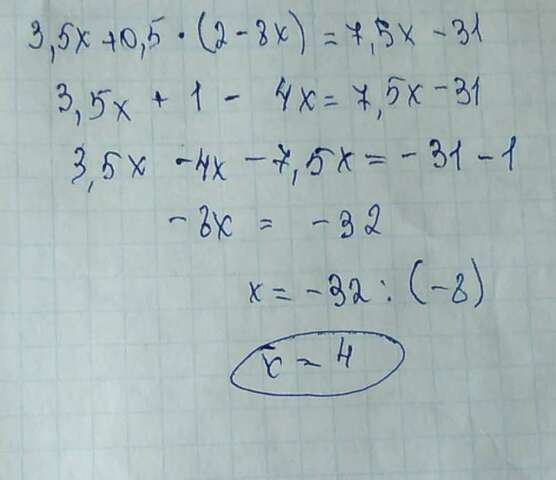 3,5x+0,5·(2-8x)=7,5x-31
3,5x + 1 - 4x=7,5x-31
3,5x -4x-7,5x=-31-1
-8x = -32
x=-32:(-8)
x=4